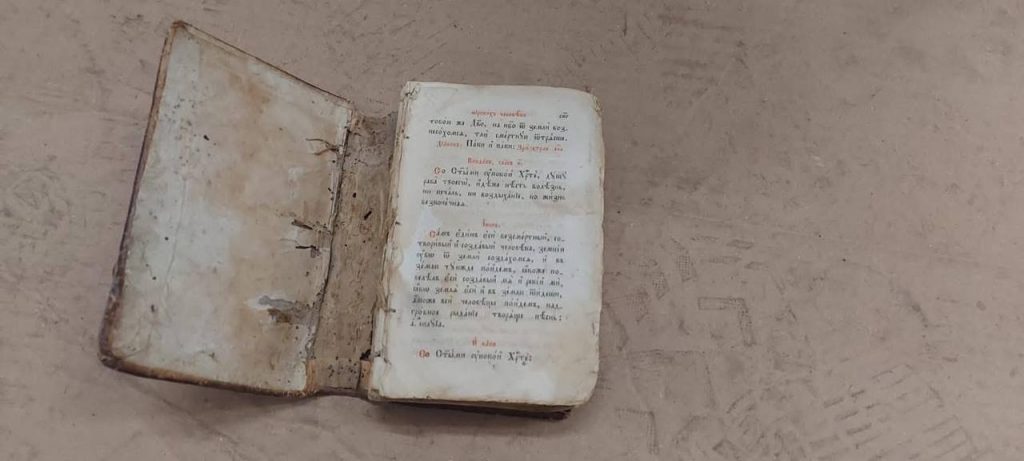 мірскихъ человѣкъ
тобою же Дв҃о, на нб҃о ѿ земли воз-
несохомсѧ, тлю смертную ѿтрѧсше.
Паки и паки:
Кондакъ, гласъ и҃.
Со Ст҃ыми ᲂупокой Хрт҃е, душу
раба твоегѡ, идѣже нѣсть болѣзнь,
ни печаль, ни воздыханіе, но жизнь
безконечнаѧ.
Ікосъ.
Самъ единъ еси безсмертный, со-
творивый и создавый человѣка, земніи
ᲂубо ѿ земли создахомсѧ, и въ
землю туюжде пойдемъ, ꙗкоже по-
велѣлъ еси создавый мѧ и рекій ми,
ꙗкѡ землѧ еси и въ землю ѿидеши,
ꙗможе вси человѣцы пойдемъ, над-
гробное рыданіе творѧще пѣснь:
аллилуіа.
Со Ст҃ыми ᲂупокой Хрт҃е: